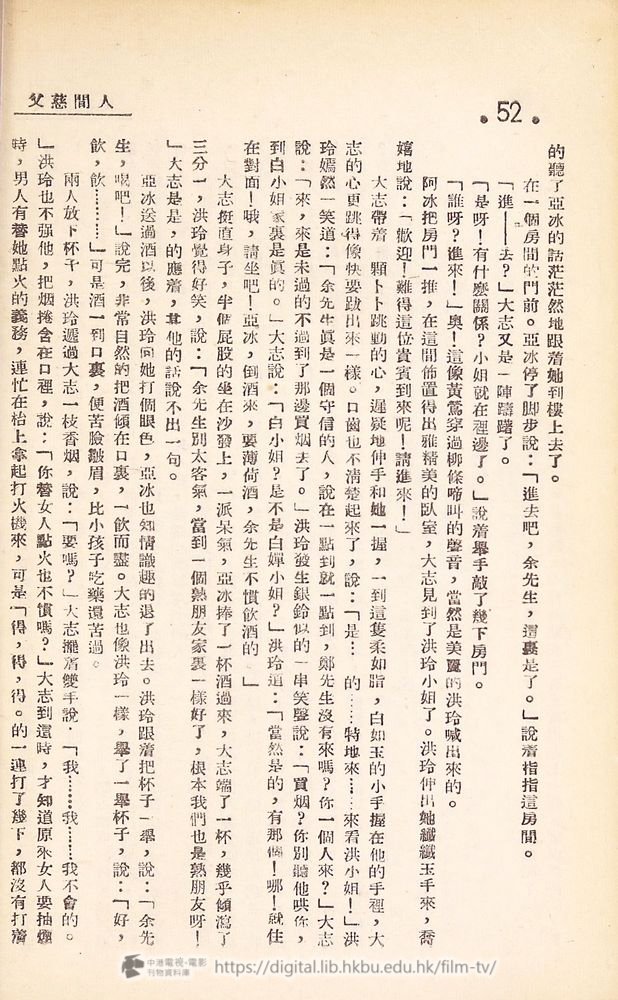 人間慈父
52
的聽了亞冰的話茫茫然地跟着她到樓上去了。
在一個房間的門前。亞冰停了脚步說：「進去吧，余先生，這裏是了。」說着指指這房間。
「進——去？」大志又是一陣躊躇了。
「是呀！有什麼關係？小姐就在裡邊了。」說着舉手敲了幾下房門。
「誰呀？進來！」奧！這像黃鶯穿過柳條啼叫的聲音，當然是美麗的洪玲喊出來的。
阿冰把房門一推，在這間佈置得出雅精美的臥室，大志見到了洪玲小姐了。洪玲伸出她纖纖玉手來，喬
嬉地說：「歡迎！難得這位貴賓到來呢！請進來！」
大志帶着一顆卜卜跳動的心，遲疑地伸手和她一握，一到這隻柔如脂，白如玉的小手握在他的手裡，大
志的心更跳得像快要跋出來一樣。口齒也不清楚起來了，說：「是…的……特地來……來看洪小姐！」洪
玲嫣然一笑道：「余先生眞是一個守信的人，說在一點到就一點到，鄭先生沒有來嗎？你一個人來？」大志
說：「來，來是未過的不過到了那邊買烟去了。」洪玲發生銀鈴似的一串笑聲說：「買烟？你別聽他哄你，
到白小姐家裏是眞的。」大志說：「白小姐？是不是白嬋小姐？」洪玲道：「當然是的，有那個！哪！就住
在對面！哦，請坐吧！亞冰，倒酒來，要薄荷酒，余先生不慣飲酒的。」
大志挺直身子，半個屁股的坐在沙發上，一派呆氣，亞冰捧了一杯酒過來，大志端了一杯，幾乎傾瀉了
三分一，洪玲覺得好笑，說：「余先生別太客氣，當到一個熟朋友家裏一樣好了，根本我們也是熟朋友呀！
」大志是是，的應着，其他的話說不出一句。
亞冰送過酒以後，洪玲向她打個眼色，亞冰也知情識趣的退了出去。洪玲跟着把杯子一舉，說：「余先
生，喝吧！」說完，非常自然的把酒傾在口裏，一飲而盡。大志也像洪玲一樣，舉了一舉杯子，說：「好，
飲，飲………」可是酒一到口裏，便苦臉皺眉，比小孩子吃藥還苦過。
兩人放下杯子，洪玲遞過大志一枝香烟，說：「要嗎？」大志擺着雙手說：「我……我……我不會的。
」洪玲也不强他，把烟捲含在口裡，說：「你替女人點火也不慣嗎？」大志到這時，才知道原來女人要抽烟
時，男人有替她點火的義務，連忙在枱上拿起打火機來，可是「得，得，得。的一連打了幾下，都沒有打着
中港電視·電影
刊物資料庫
https://digital.lib.hkbu.edu.hk/film-tv/